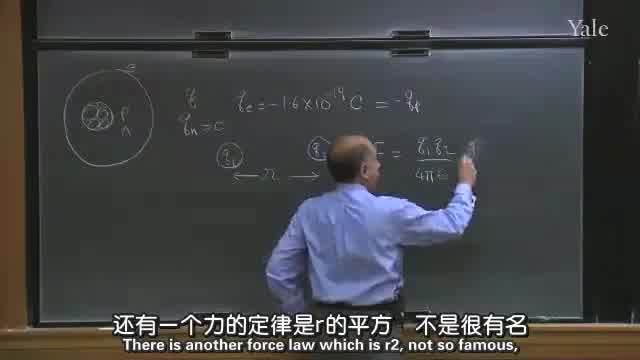 Yale
e
P
n
q
q_e = -1.6 × 10^-19 C = -q_p
q_n = 0
q_1
q
= q_1 q_2
r
4π
还有一个力的定律是r的平方 不是很有名
There is another force law which is r2, not so famous,